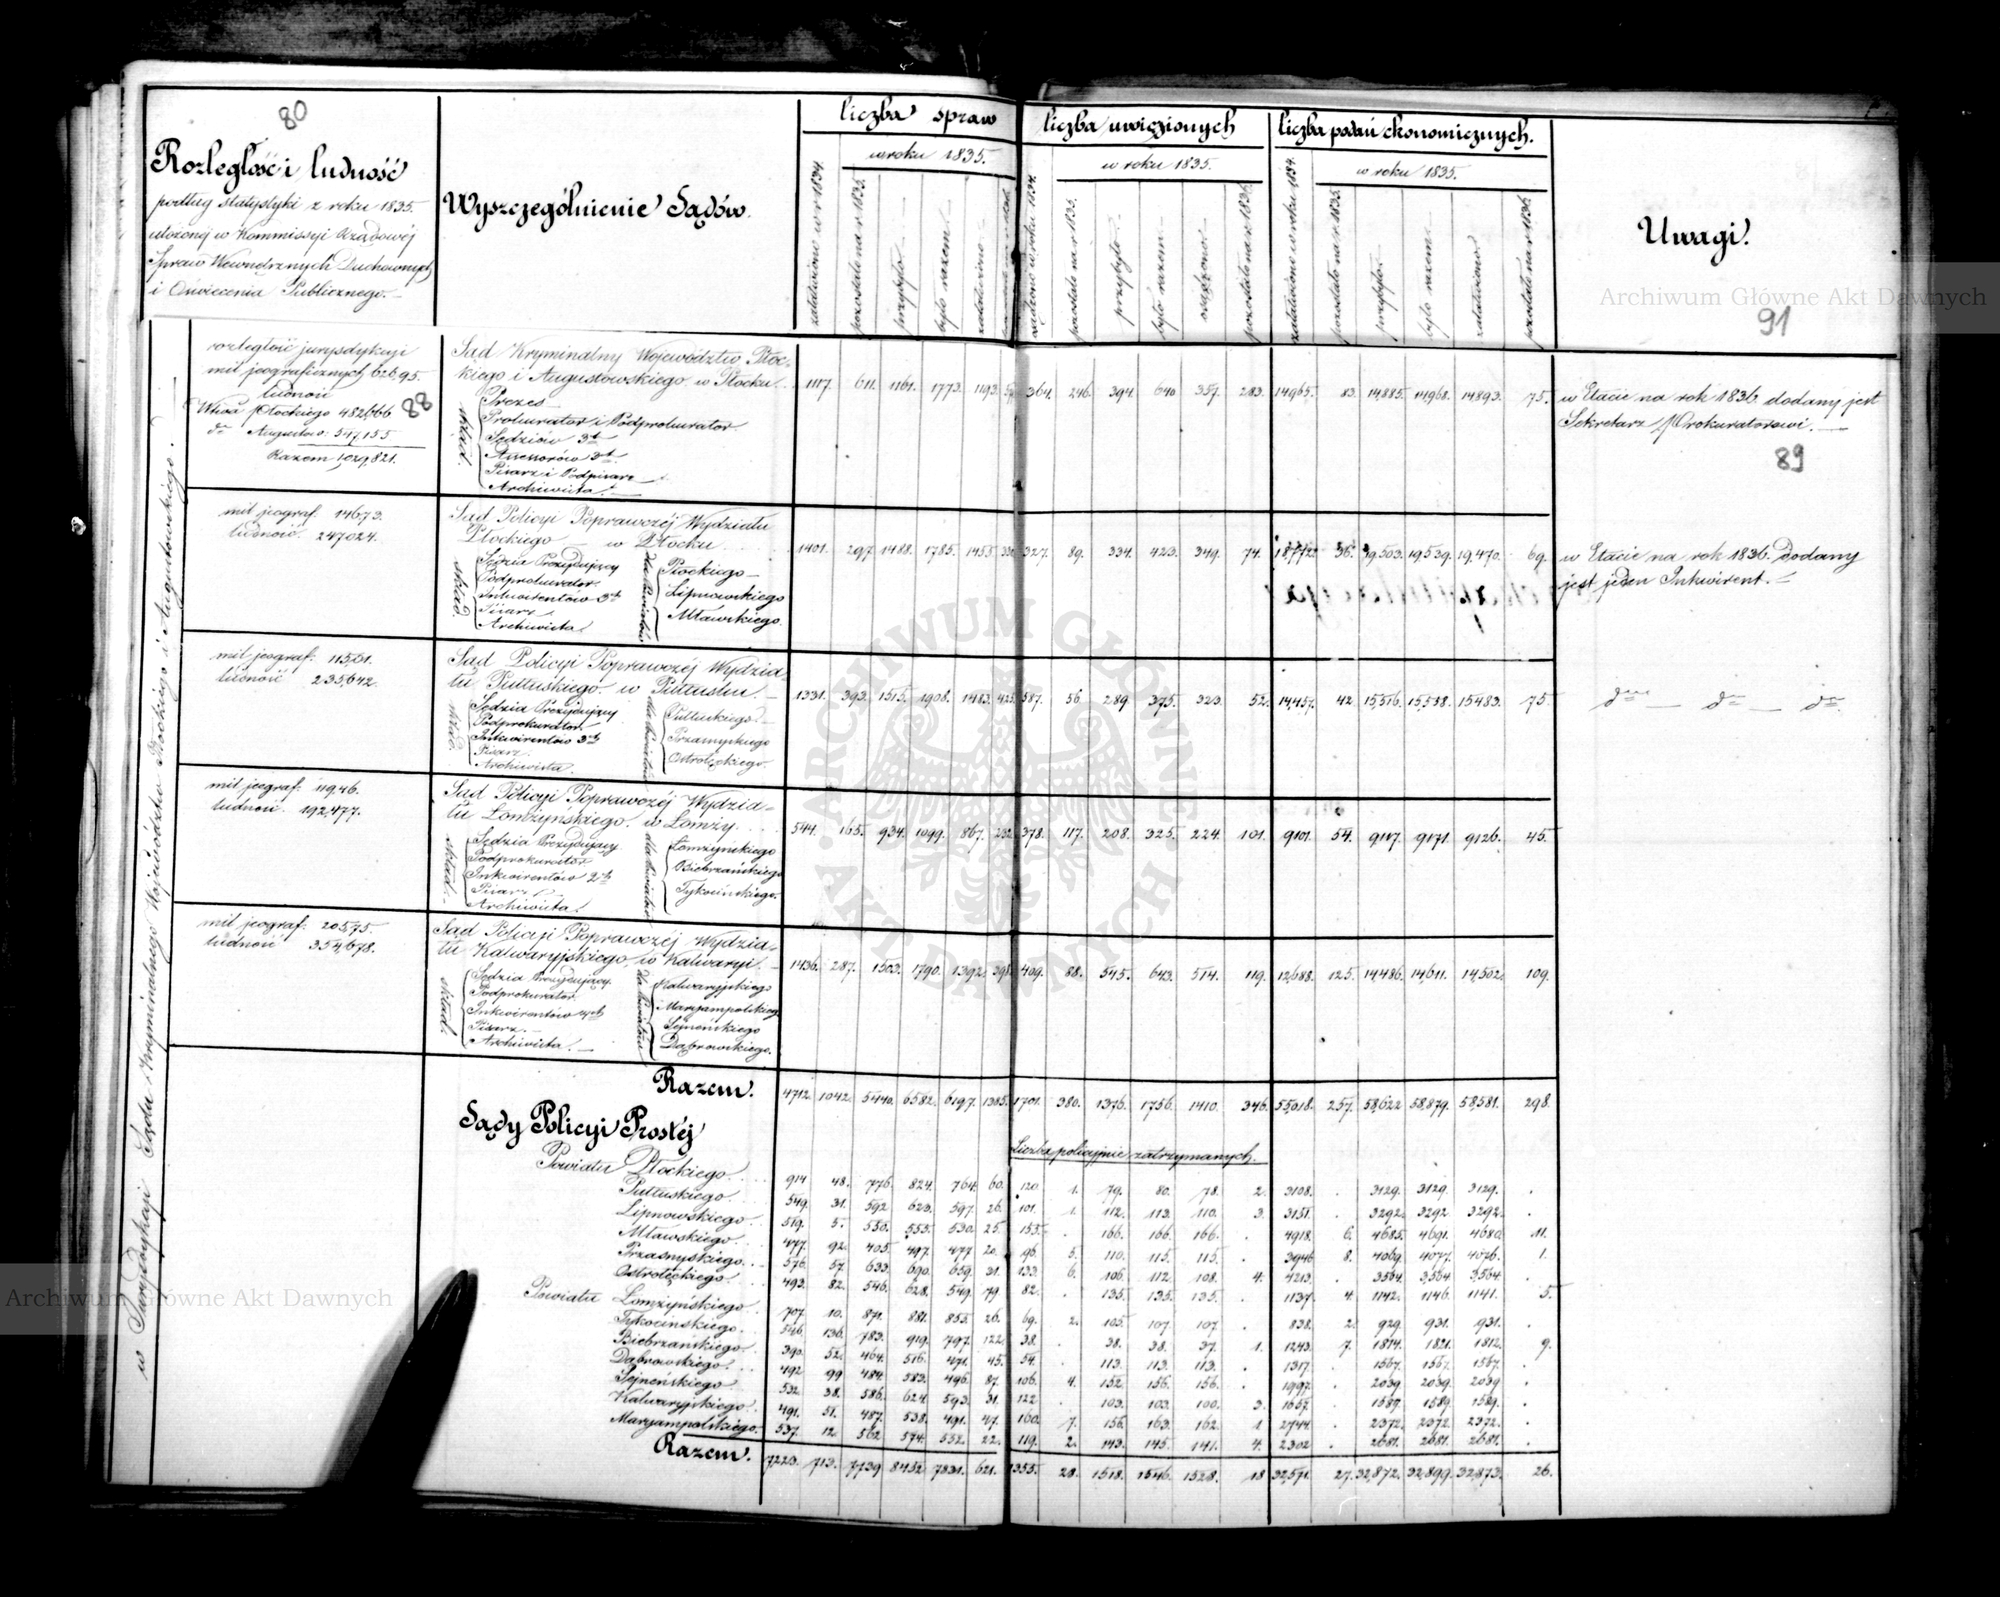 80
Rozległość i ludność
podług statystyki z roku 1835.
ułożonéj w Kommissyi Rządowéj
Spraw Wewnętrznych Duchownych
i Oświecenia Publicznego.
Wyszczególnienie Sądów.
liczba spraw
załatwiono w r 1834.
w roku 1835.
pozostało na r 1835.
przybyło
było razem
załatwiono
liczba uwięzionych
osądzono w roku 1834.
w roku 1835.
pozostało na r 1835.
przybyło
było razem
osądzono
pozostało na r 1836.
liczba podań ekonomicznych.
załatwiono w roku 1834.
w roku 1835.
pozostało na r 1835.
przybyło
było razem
załatwiono
pozostało na r 1836.
Uwagi.
Archiwum Główne Akt Dawnych
91
w Jurysdykcyi Sądu Kryminalnego Województw Płockiego i Augustowskiego.
rozległość jurysdykcyi
mil jeograficznych 626,95.
ludność
Wtwa Płockiego 482,666
88
do Augustow: 547,155
Razem 1,029,821.
Sąd Kryminalny Województw Płoc-
kiego i Augustowskiego w Płocku.
skład.
Prezes
Prokurator i Podprokurator
Sędziów 3ch
Assessorów 3ch
Pisarz i Podpisarz
Archiwista.
1117. 611. 1161. 1773. 1193. 364. 246. 394. 640 357. 283. 14965. 83. 14885. 14968. 14893. 75.
w Etacie na rok 1836 dodany jest
Sekretarz Prokuratorowi.
89
mil jeograf. 146,73.
ludność 247,024.
Sąd Policyi Poprawczéj Wydziału
Płockiego w Płocku
skład.
Sędzia Prezydujący
Podprokurator.
Inkwirentów 3ch
Pisarz
Archiwista.
dla Powiatów
Płockiego
Lipnowskiego
Mławskiego.
1401. 297. 1488. 1785. 1455 330. 327. 89. 334. 423. 349. 74. 18,772. 36. 19,503. 19,539. 19,470. 69.
w Etacie na rok 1836. dodany
jest jeden Inkwirent.
mil jeograf: 115,01.
ludność 235,642.
Sąd Policyi Poprawczéj Wydzia-
łu Pułtuskiego w Pułtusku.
skład.
Sędzia Prezydujący
Podprokurator.
Inkwirentów 3ch
Pisarz.
Archiwista.
dla Powiatów
Pułtuskiego
Przasnyskiego
Ostrołęckiego.
1331. 393. 1515. 1908. 1483. 425. 587. 56 289. 375. 323. 52. 14,457. 42. 15,516. 15,558. 15483. 75.
dto do do
mil jeograf: 119,46.
ludność 192,477.
Sąd Policyi Poprawczéj Wydzia-
łu Łomżyńskiego w Łomży.
skład.
Sędzia Prezydujący
Podprokurator
Inkwirentów 2ch
Pisarz
Archiwista.
dla Powiatów
Łomżyńskiego
Biebrzańskiego
Tykocińskiego.
544. 165. 934. 1099. 867. 232. 378. 117. 208. 325. 224. 101. 9101. 54. 9117. 9171. 9126. 45.
mil jeograf: 205,75.
ludność 354,678.
Sąd Policyi Poprawczéj Wydzia-
łu Kalwaryjskiego w Kalwaryi.
skład.
Sędzia Prezydujący.
Podprokurator.
Inkwirentów 4ch
Pisarz.
Archiwista.
dla Powiatów
Kalwaryjskiego
Maryampolskiego
Sejneńskiego
Dąbrowskiego.
1436. 287. 1503. 1790. 1392. 398. 409. 88. 545. 633. 514. 119. 12,688. 125. 14,486. 14,611. 14,502. 109.
Razem. 4712. 1042. 5440. 6582. 6197. 1385. 1701. 380. 1376. 1756. 1410. 346. 55,018. 257. 58,622 58,879. 58,581. 298.
Sądy Policyi Prostéj
Liczba policyjnie zatrzymanych.
Powiatu Płockiego. 914 48. 776. 824. 764. 60. 120. 1. 79. 80. 78. 2. 3108. . 3129. 3129. 3129. .
Pułtuskiego. 549. 31. 592 623. 597. 26. 101. 1. 112. 113. 110. 3. 3151. . 3292. 3292 3292. .
Lipnowskiego. 519. 5. 550. 555. 530. 25. 155. . 166. 166. 166. . 4918. 6. 4685. 4691. 4680. 11.
Mławskiego. 477. 92. 405. 497. 477 20. 96. 5. 110. 115. 115. . 3946 8. 4069. 4077. 4076. 1.
Przasnyskiego. 576. 57. 633. 690. 659. 31. 133. 6. 106. 112. 108. 4. 4213. . 3564. 3,564 3,564. .
Ostrołęckiego. 493. 82. 546. 628. 549. 79 82. . 135. 135. 135. . 1137. 4. 1142. 1146. 1141. 5.
Powiatu Łomżyńskiego. 707. 10. 871. 881. 855. 26. 69. 2. 105. 107 107 . 838. 2. 929. 931. 931. .
Tykocińskiego. 546. 136. 783. 919. 797. 122. 38. . 38. 38. 37. 1. 1243. 7. 1814. 1821. 1812. 9.
Biebrzańskiego. 390. 52. 464. 516. 471. 45. 54. . 113. 113. 113. . 1317. . 1567. 1567. 1567. .
Dąbrowskiego. 492 99 484. 583. 496. 87. 106. 4. 152. 156. 156. . 1997. . 2039 2039. 2039 .
Sejneńskiego. 532. 38. 586. 624. 593. 31. 122. . 103. 103. 100. 3. 1657. . 1589. 1589. 1589. .
Kalwaryjskiego. 491. 51. 487. 538. 491. 47. 160. 7. 156. 163. 162. 1 2744. . 2372. 2372. 2372. .
Maryampolskiego. 537. 12. 562 574. 552. 22. 119. 2. 143. 145. 141. 4. 2302 . 2681. 2681. 2681. .
Razem. 7223. 713. 7739 8452 7831. 621. 1355. 28. 1518. 1546. 1528. 18 32,571. 27. 32,872. 32,899. 32,873. 26.
Archiwum Główne Akt Dawnych
ARCHIWUM GŁÓWNE AKT DAWNYCH